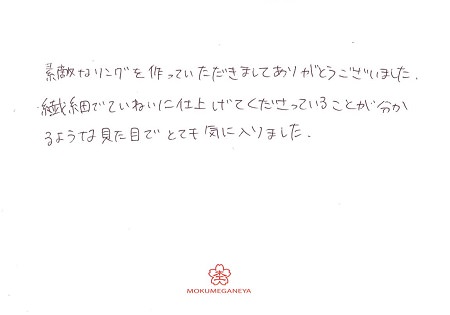 素敵なリングを作っていただきましてありがとうございました.
繊細でていねいに仕上げてくださっていることが分か
るような見た目でとても気に入りました.
MOKUMEGANEYA